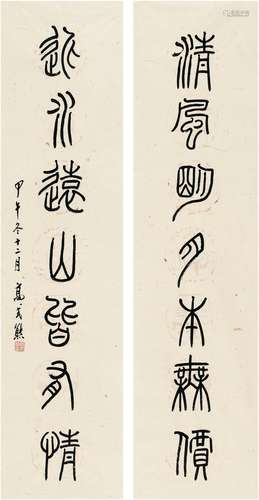 清風明月本無價
近水遠山皆有情
甲午冬十二月